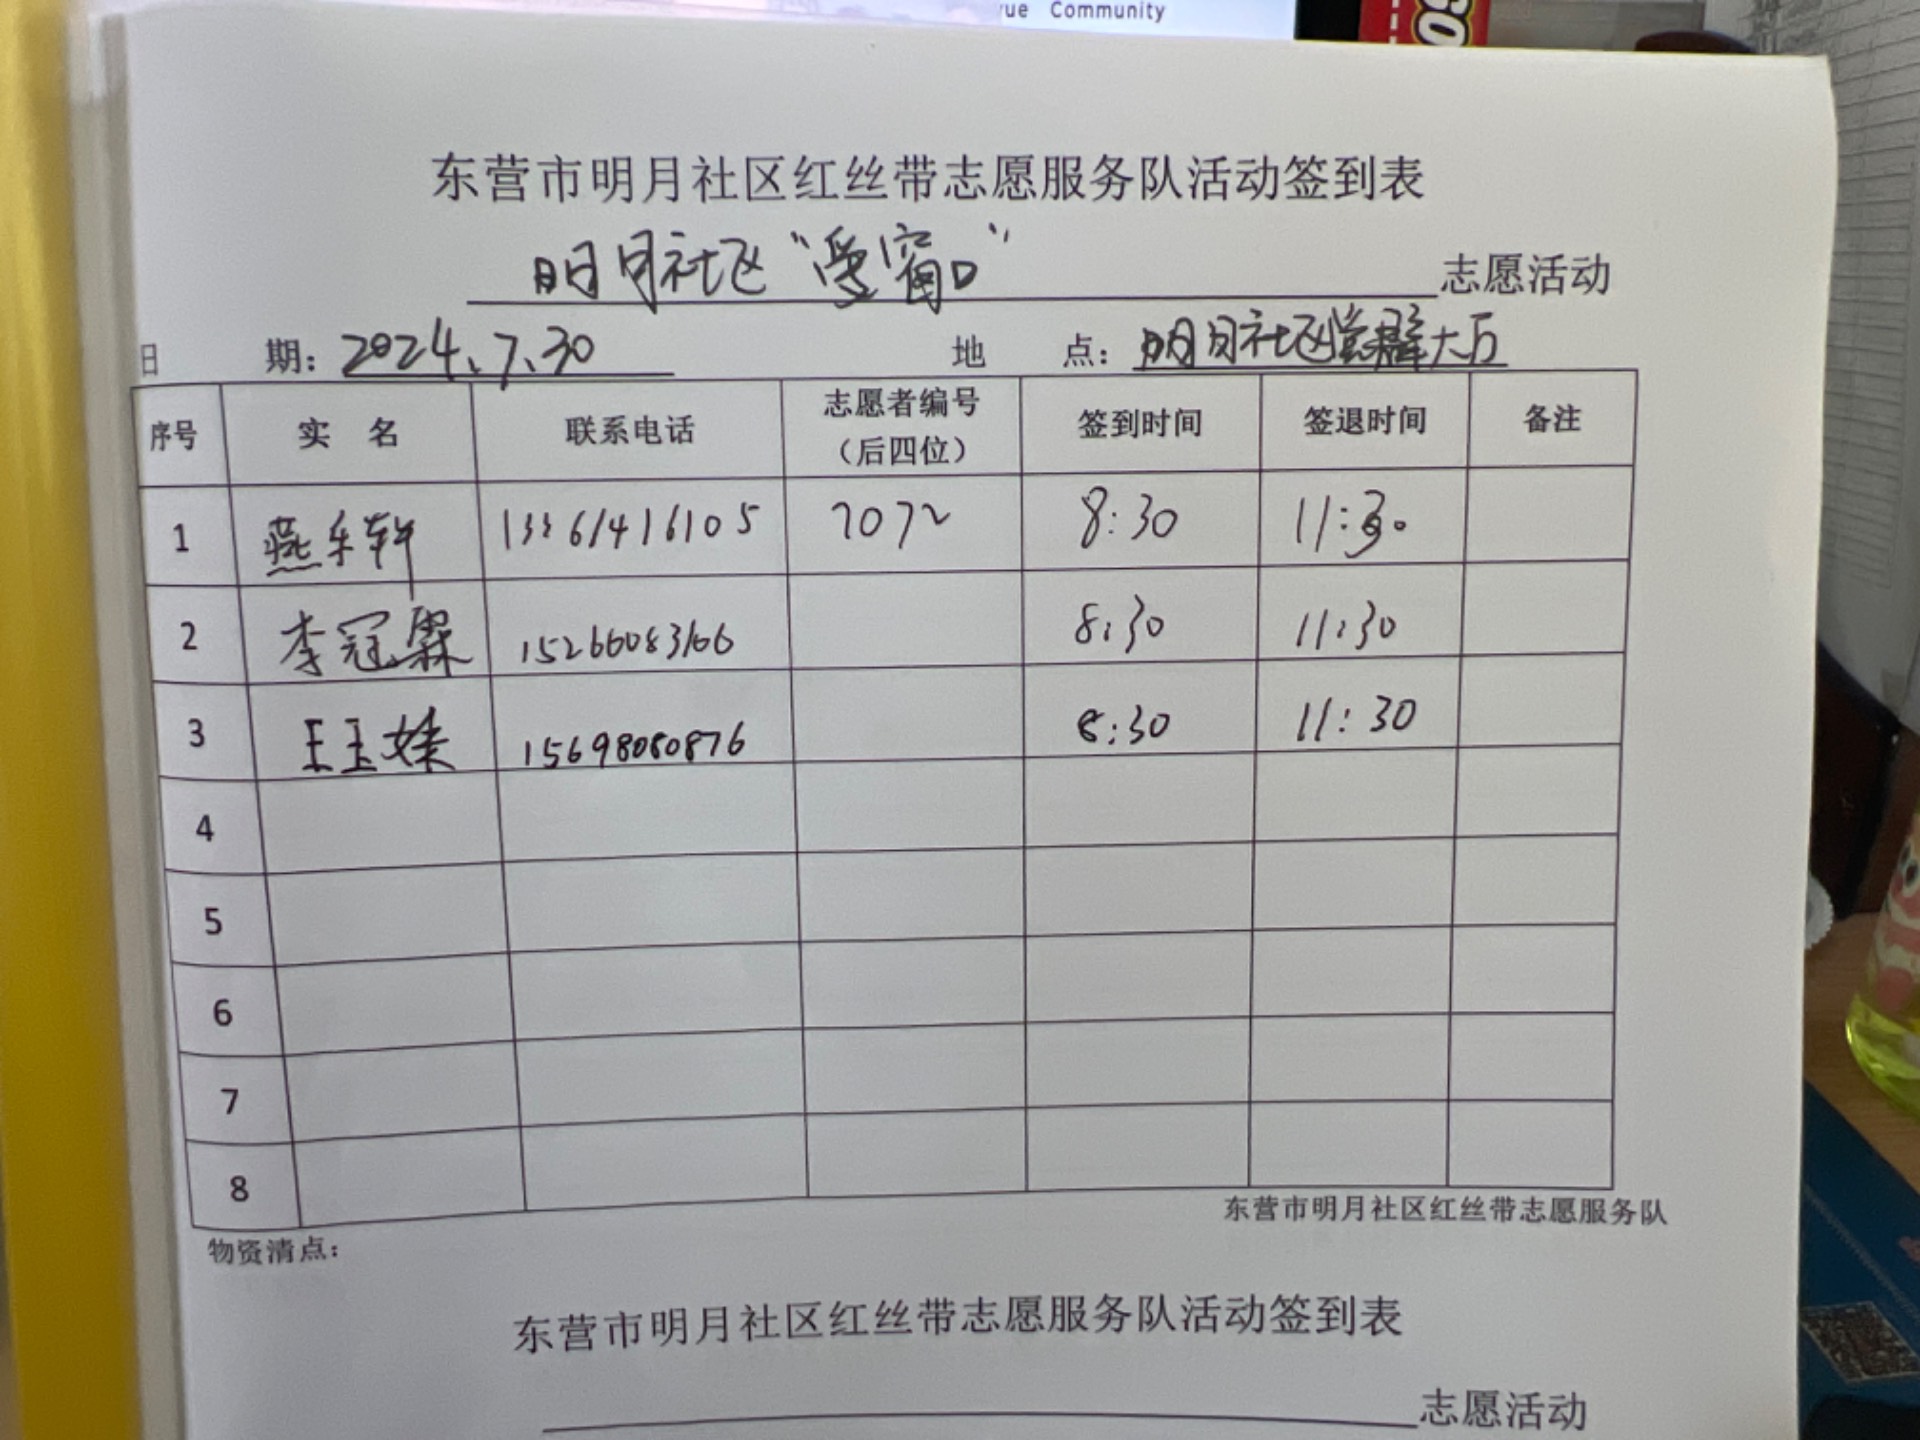 Community
东营市明月社区红丝带志愿服务队活动签到表
明月社区“爱窗口” 志愿活动
日 期：2024.7.30 地 点：明月社区党群大厅
序号 实 名 联系电话 志愿者编号（后四位） 签到时间 签退时间 备注
1 燕乐轩 13361416105 7072 8:30 11:30
2 李冠霖 15266083166 8:30 11:30
3 王玉 15698080876 8:30 11:30
4
5
6
7
8
东营市明月社区红丝带志愿服务队
物资清点：
东营市明月社区红丝带志愿服务队活动签到表
志愿活动